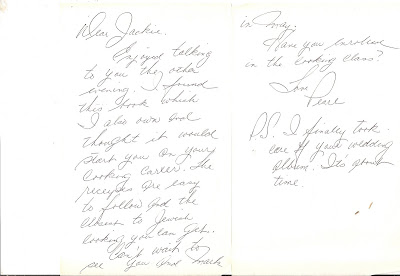 Dear Jackie.
Enjoyed talking
to you the other
evening. I found
this book which
I also own and
thought it would
start you on your
Cooking Career. The
recipes are easy
to follow and the
closest to Jewish
cooking you can get.
Can't wait to
see you and Mark
in May.
Have you enrolled
in the Cooking class?
Love
P.S. I finally took
care of your wedding
album. It's about
time.